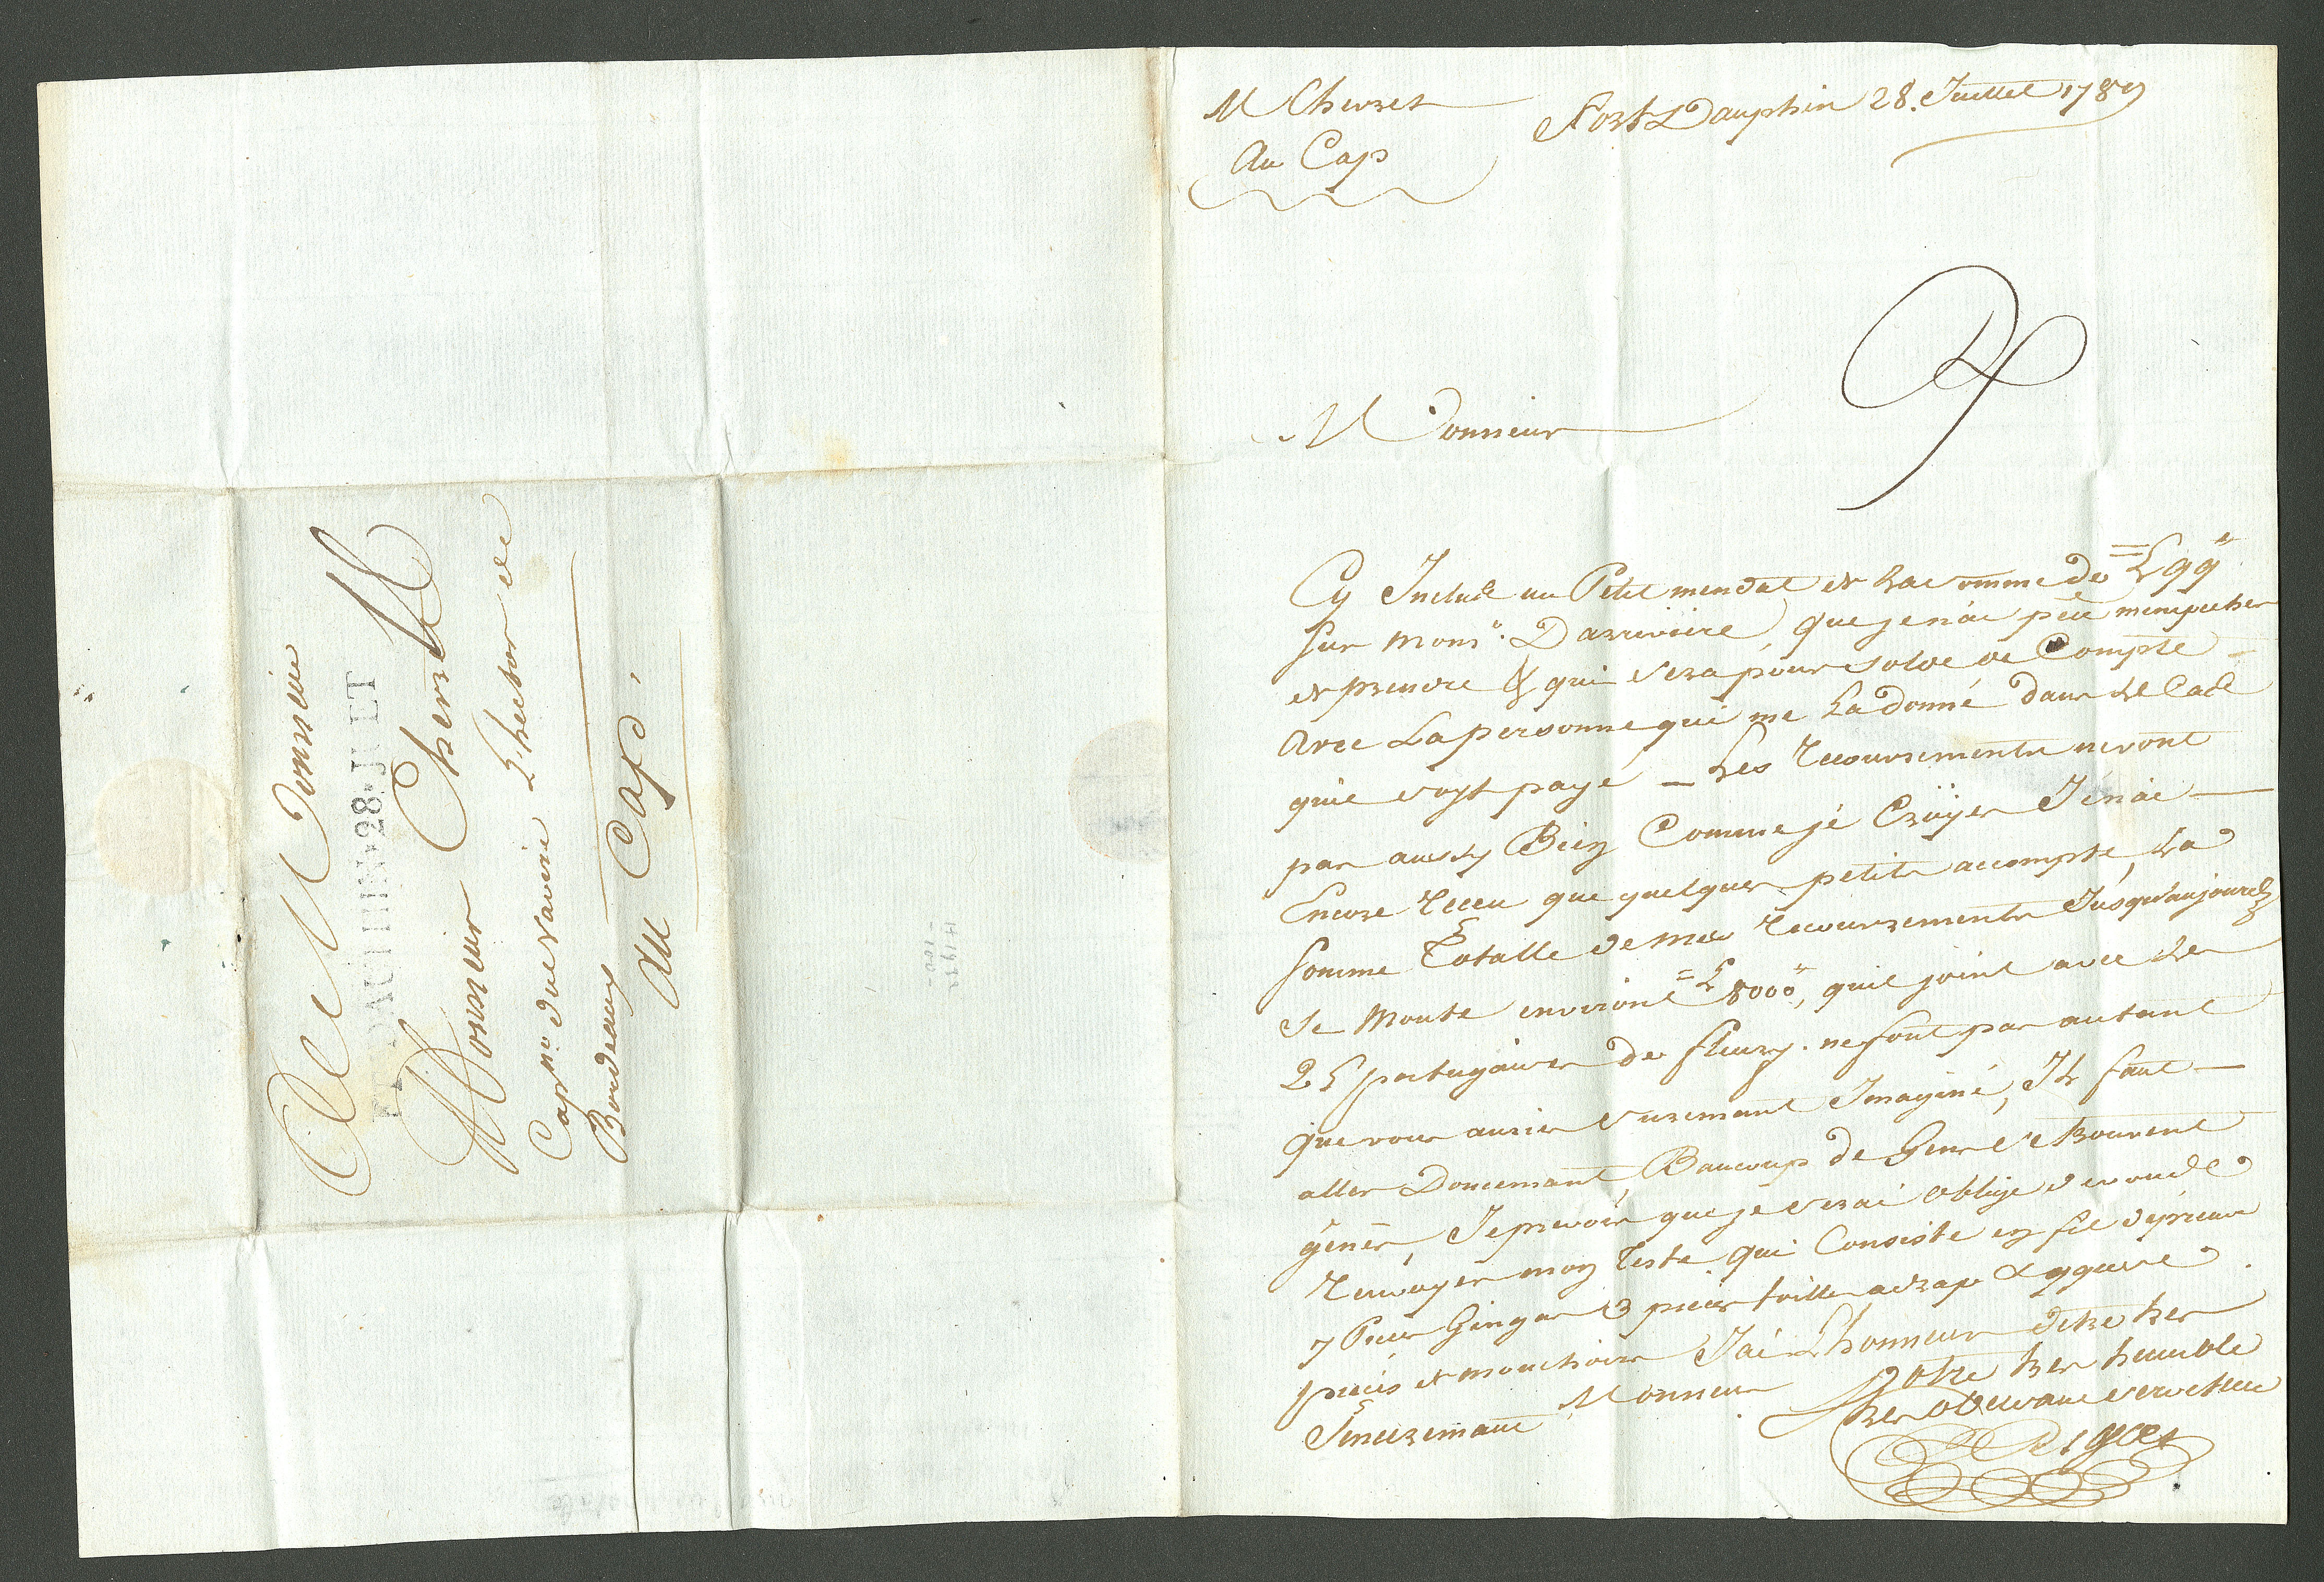 M Cherset
Au Cap
Fort Dauphin 28. Juillet 1789
Monsieur
Cy Inclus un Petit mendat de La somme de L 99
sur Mons.r Darriviere, que je nai peu menpecher
de prendre & qui sera pour solde de Compte
avec La personne qui me La donné dans Le Cas
quil soyt payé – Les Recouvrements ne vont
pas aussy Bien Comme je Croÿes Je nai
Encore Receu que quelques petits accompte, La
somme Totalle de mes Recouvrements Jusquaujourd
se Monte environt L 8000, quil joint avec Les
25 portugaises de fleury. ne font pas autant
que vous auries surement Jmaginé, Il faut
aller Doucemant, Baucoup de Gens se trouvent
génés, Je prevois que je serai obligé de vous
Renvoyer mon Reste qui Consiste en fil depreuve
7 Pieces Gingas 3 pieces toille a drap &
pieces de mouchoirs Jai Lhonneur detre tres
Sinceremant Monsieur Votre tres humble
tres obeissant serviteur
A Monsieur
FT DAUPHIN 28 JLET
Monsieur Cherset
Cap.ne du Navire Lhector de
Bordeaux
Au Cap.